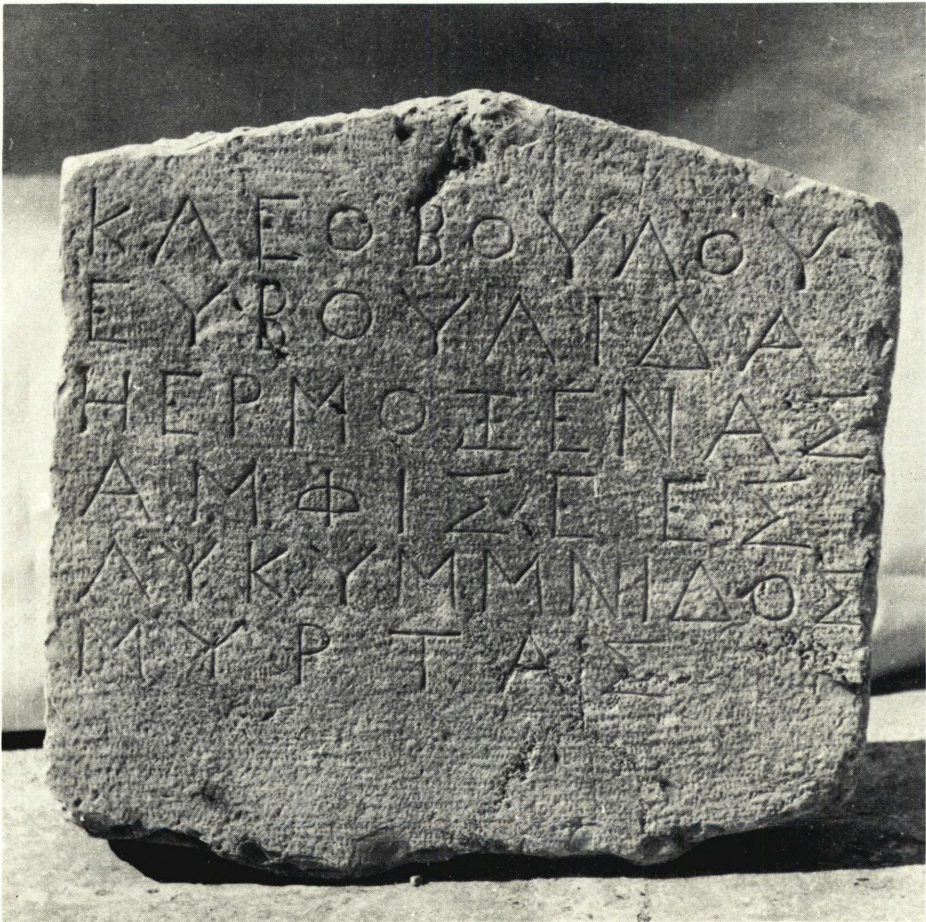 ΚΛΕΟΒΟΥΛΟΥ
ΕΥΒΟΥΛΙΔΑ
ΗΕΡΜΟΞΕΝΑΣ
ΑΜΦΙΣΕΕΣ
ΛΥΚΥΜΜΝΙΔΟΣ
ΜΥΡΤΑΣ